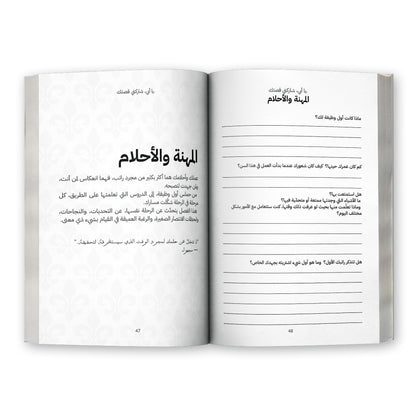 يا أبي، شاركني قصتك
المهنة والأحلام
عملك وأحلامك هما أكثر بكثير من مجرد راتب، فهما انعكاس لمن أنت،
ولمن تصبحه.
من حماس أول وظيفة، إلى الدروس التي تعلمتها على الطريق، كل
مرحلة في الرحلة شكّلت مسارك.
هذا الفصل يبحث عن الرحلة نفسها، عن التحديات، والنجاحات،
ولحظات الانتصار الصغيرة، والرضا العميق في القيام بشيء ذي معنى.
"لا تتخلَّ عن حلمك لمجرد الوقت الذي سيستغرقه لتحقيقه."
47
يا أبي، شاركني قصتك
المهنة والأحلام
ماذا كانت أول وظيفة لك؟
كم كان عمرك حينها؟ كيف كان شعورك عندما بدأت العمل في هذا السن؟
هل استمتعت بها؟
ما الأشياء التي وجدتها ممتعة أو متحدّية فيها؟
وماذا تعلّمت منها بحيث لو عرفت ذلك وقتها، كنت ستتعامل مع الأمور بشكل
مختلف اليوم؟
هل تتذكر راتبك الأول؟ وما هو أول شيء اشتريته بجهدك الخاص؟
48